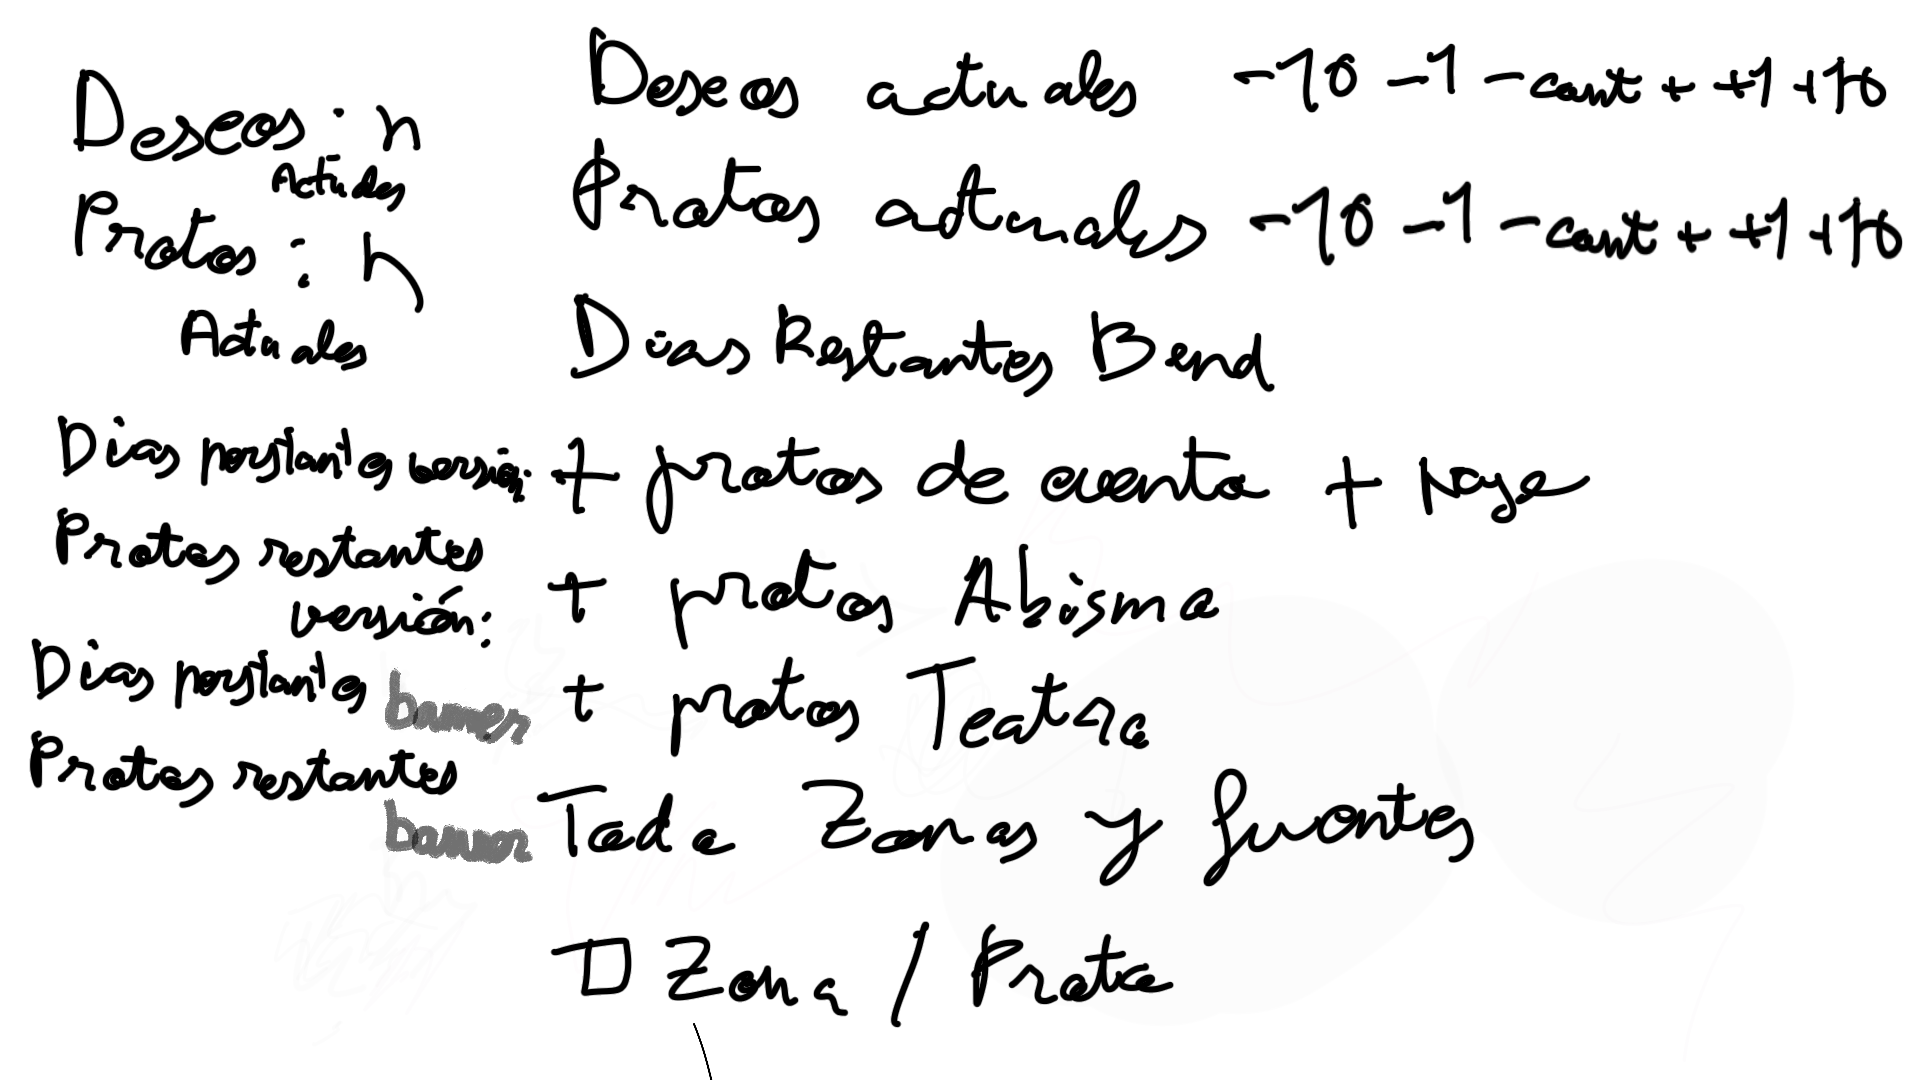 Deseos: n
Actuales
Protos: n
Actuales
Dias restantes versión
Protos restantes
versión:
Dias restantes banner
Protos restantes
banner
Deseos actuales -10 -1 - cant + +1 +10
Protos actuales -10 -1 - cant + +1 +10
Dias Restantes Bend
+ protos de evento +
+ protos Abismo
+ protos Teatro
Todo Zonas y fuentes
Zona / Proto